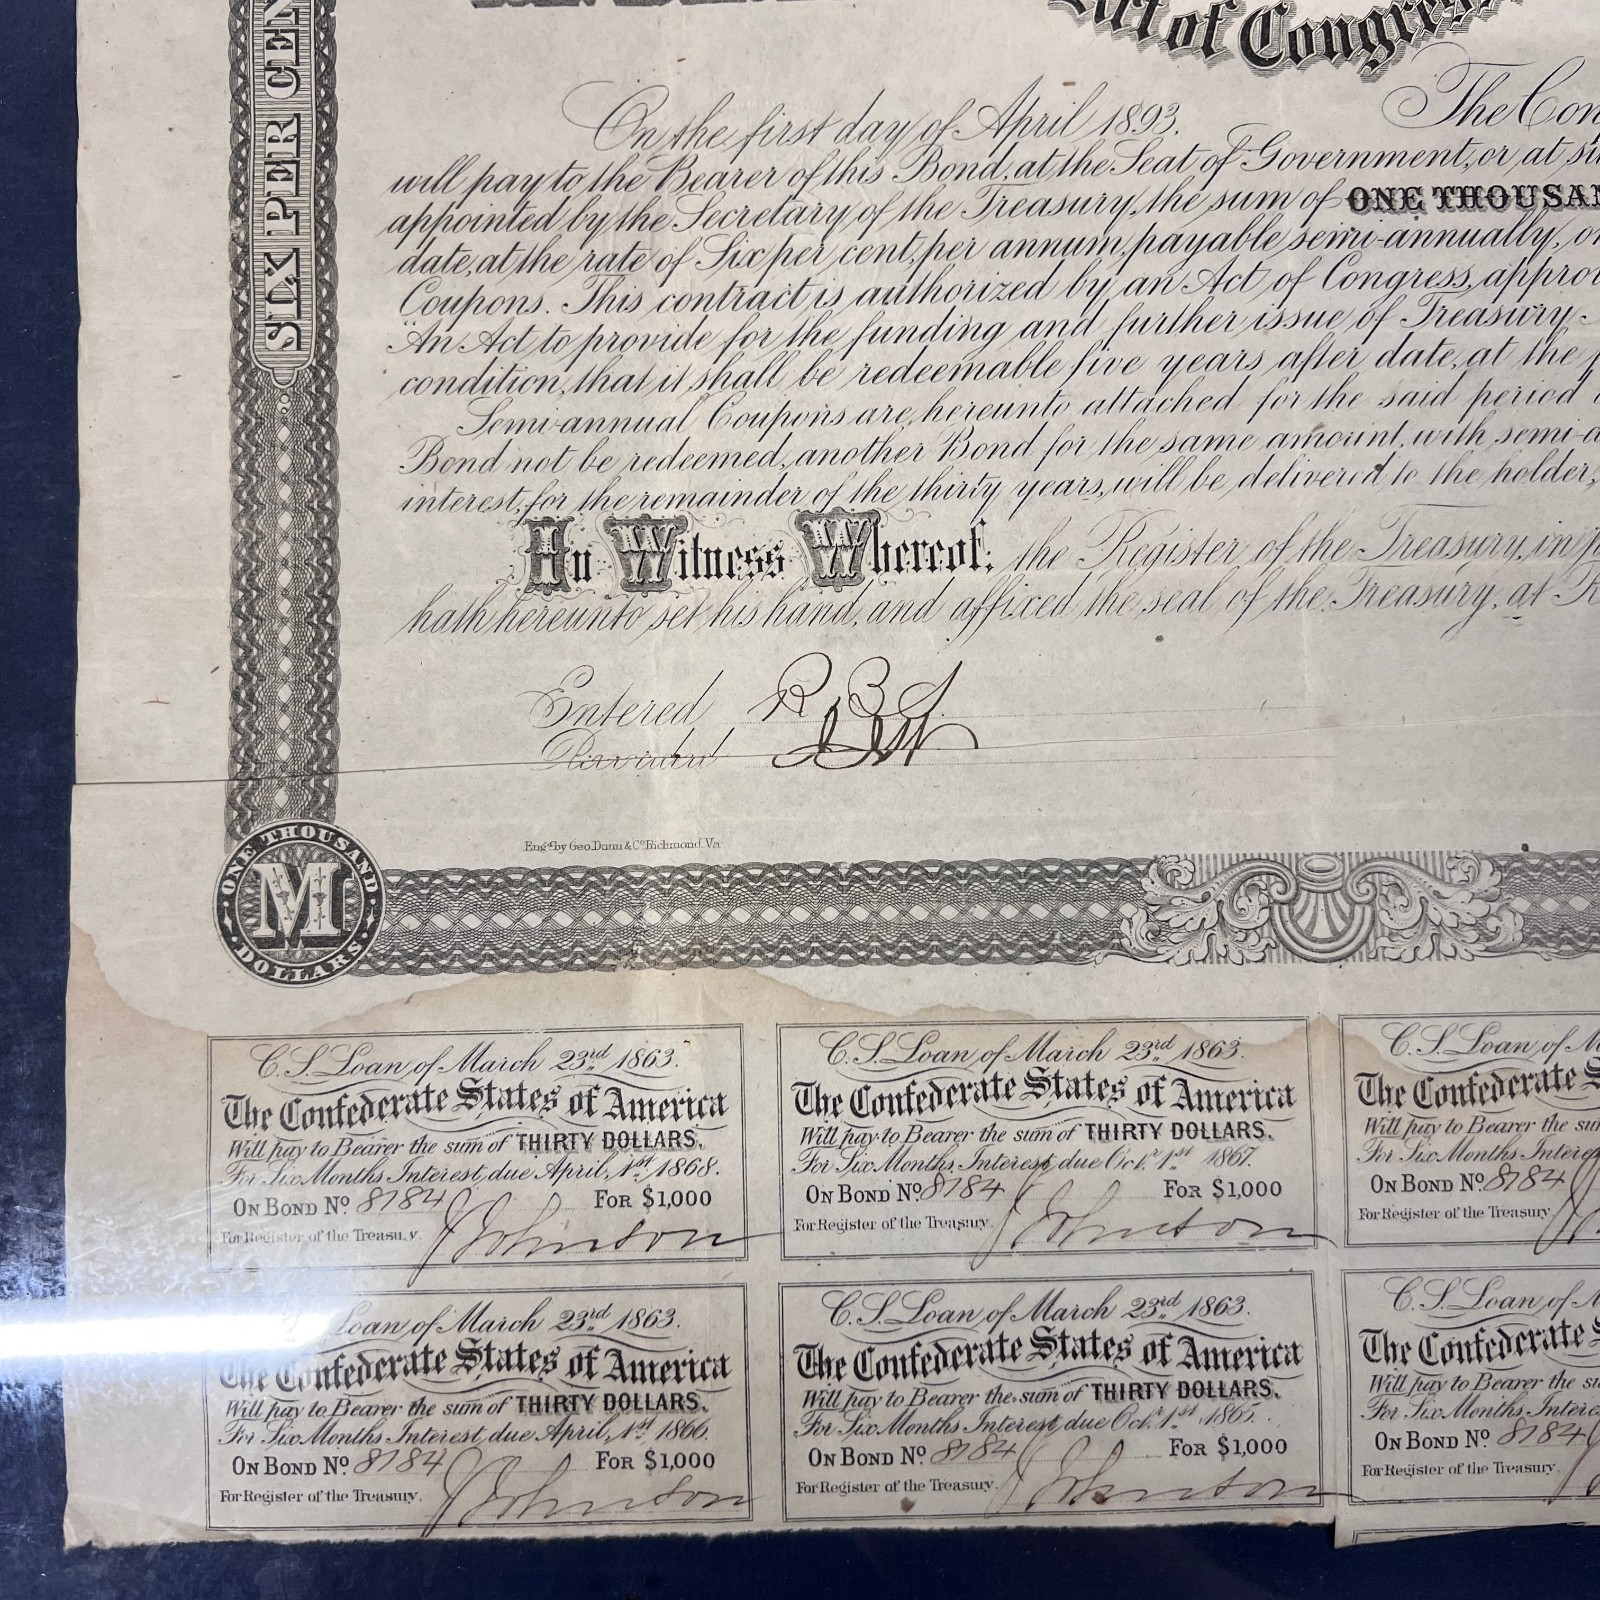 SIX PER CEN
Act of Congress
On the first day of April 1893. The Con
will pay to the Bearer of this Bond, at the Seat of Government, or at su
appointed by the Secretary of the Treasury, the sum of ONE THOUSAN
date, at the rate of Six per cent, per annum, payable semi-annually, o
Coupons. This contract is authorized by an Act of Congress, approv
"An Act to provide for the funding and further issue of Treasury-
condition, that it shall be redeemable five years after date, at the p
Semi-annual Coupons are, hereunto attached for the said period
Bond not be redeemed, another Bond for the same amount, with semi-a
interest, for the remainder of the thirty years, will be delivered to the holder,
In Witness Whereof, the Register of the Treasury, in
hath hereunto set his hand, and affixed the seal of the Treasury, at R
Entered
Recorded
Engd. by Geo. Dunn & Co. Richmond. Va.
ONE THOUSAND
M
DOLLARS
C.S. Loan of March 23rd 1863.
The Confederate States of America
Will pay to Bearer the sum of THIRTY DOLLARS.
For Six Months Interest, due April, 1st 1868.
ON BOND No. 8184 FOR $1,000
For Register of the Treasury. J Johnston
C.S. Loan of March 23rd 1863.
The Confederate States of America
Will pay to Bearer the sum of THIRTY DOLLARS.
For Six Months Interest, due Oct. 1st 1867.
ON BOND No. 8184 FOR $1,000
For Register of the Treasury. J Johnston
C.S. Loan of M
The Confederate S
Will pay to Bearer the su
For Six Months Intere
ON BOND No. 8184
For Register of the Treasury
Loan of March 23rd 1863.
The Confederate States of America
Will pay to Bearer the sum of THIRTY DOLLARS.
For Six Months Interest, due April, 1st 1866.
ON BOND No. 8184 FOR $1,000
For Register of the Treasury. J Johnston
C.S. Loan of March 23rd 1863.
The Confederate States of America
Will pay to Bearer the sum of THIRTY DOLLARS.
For Six Months Interest, due Oct. 1st 1865.
ON BOND No. 8184 FOR $1,000
For Register of the Treasury. J Johnston
C.S. Loan of M
The Confederate S
Will pay to Bearer the su
For Six Months Intere
ON BOND No. 8184
For Register of the Treasury.